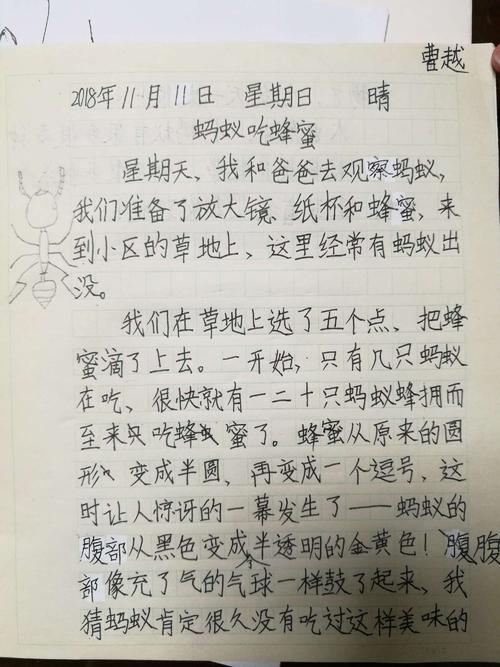 曹越
2018年11月11日 星期日 晴
蚂蚁吃蜂蜜
星期天，我和爸爸去观察蚂蚁，
我们准备了放大镜、纸杯和蜂蜜，来
到小区的草地上，这里经常有蚂蚁出
没。
我们在草地上选了五个点、把蜂
蜜滴了上去。一开始，只有几只蚂蚁
在吃、很快就有一二十只蚂蚁蜂拥而
至来吃蜂蜜了。蜂蜜从原来的圆
形变成半圆，再变成一个逗号，这
时让人惊讶的一幕发生了——蚂蚁的
腹部从黑色变成半透明的金黄色！腹
部像充了气的气球一样鼓了起来，我
猜蚂蚁肯定很久没有吃过这样美味的